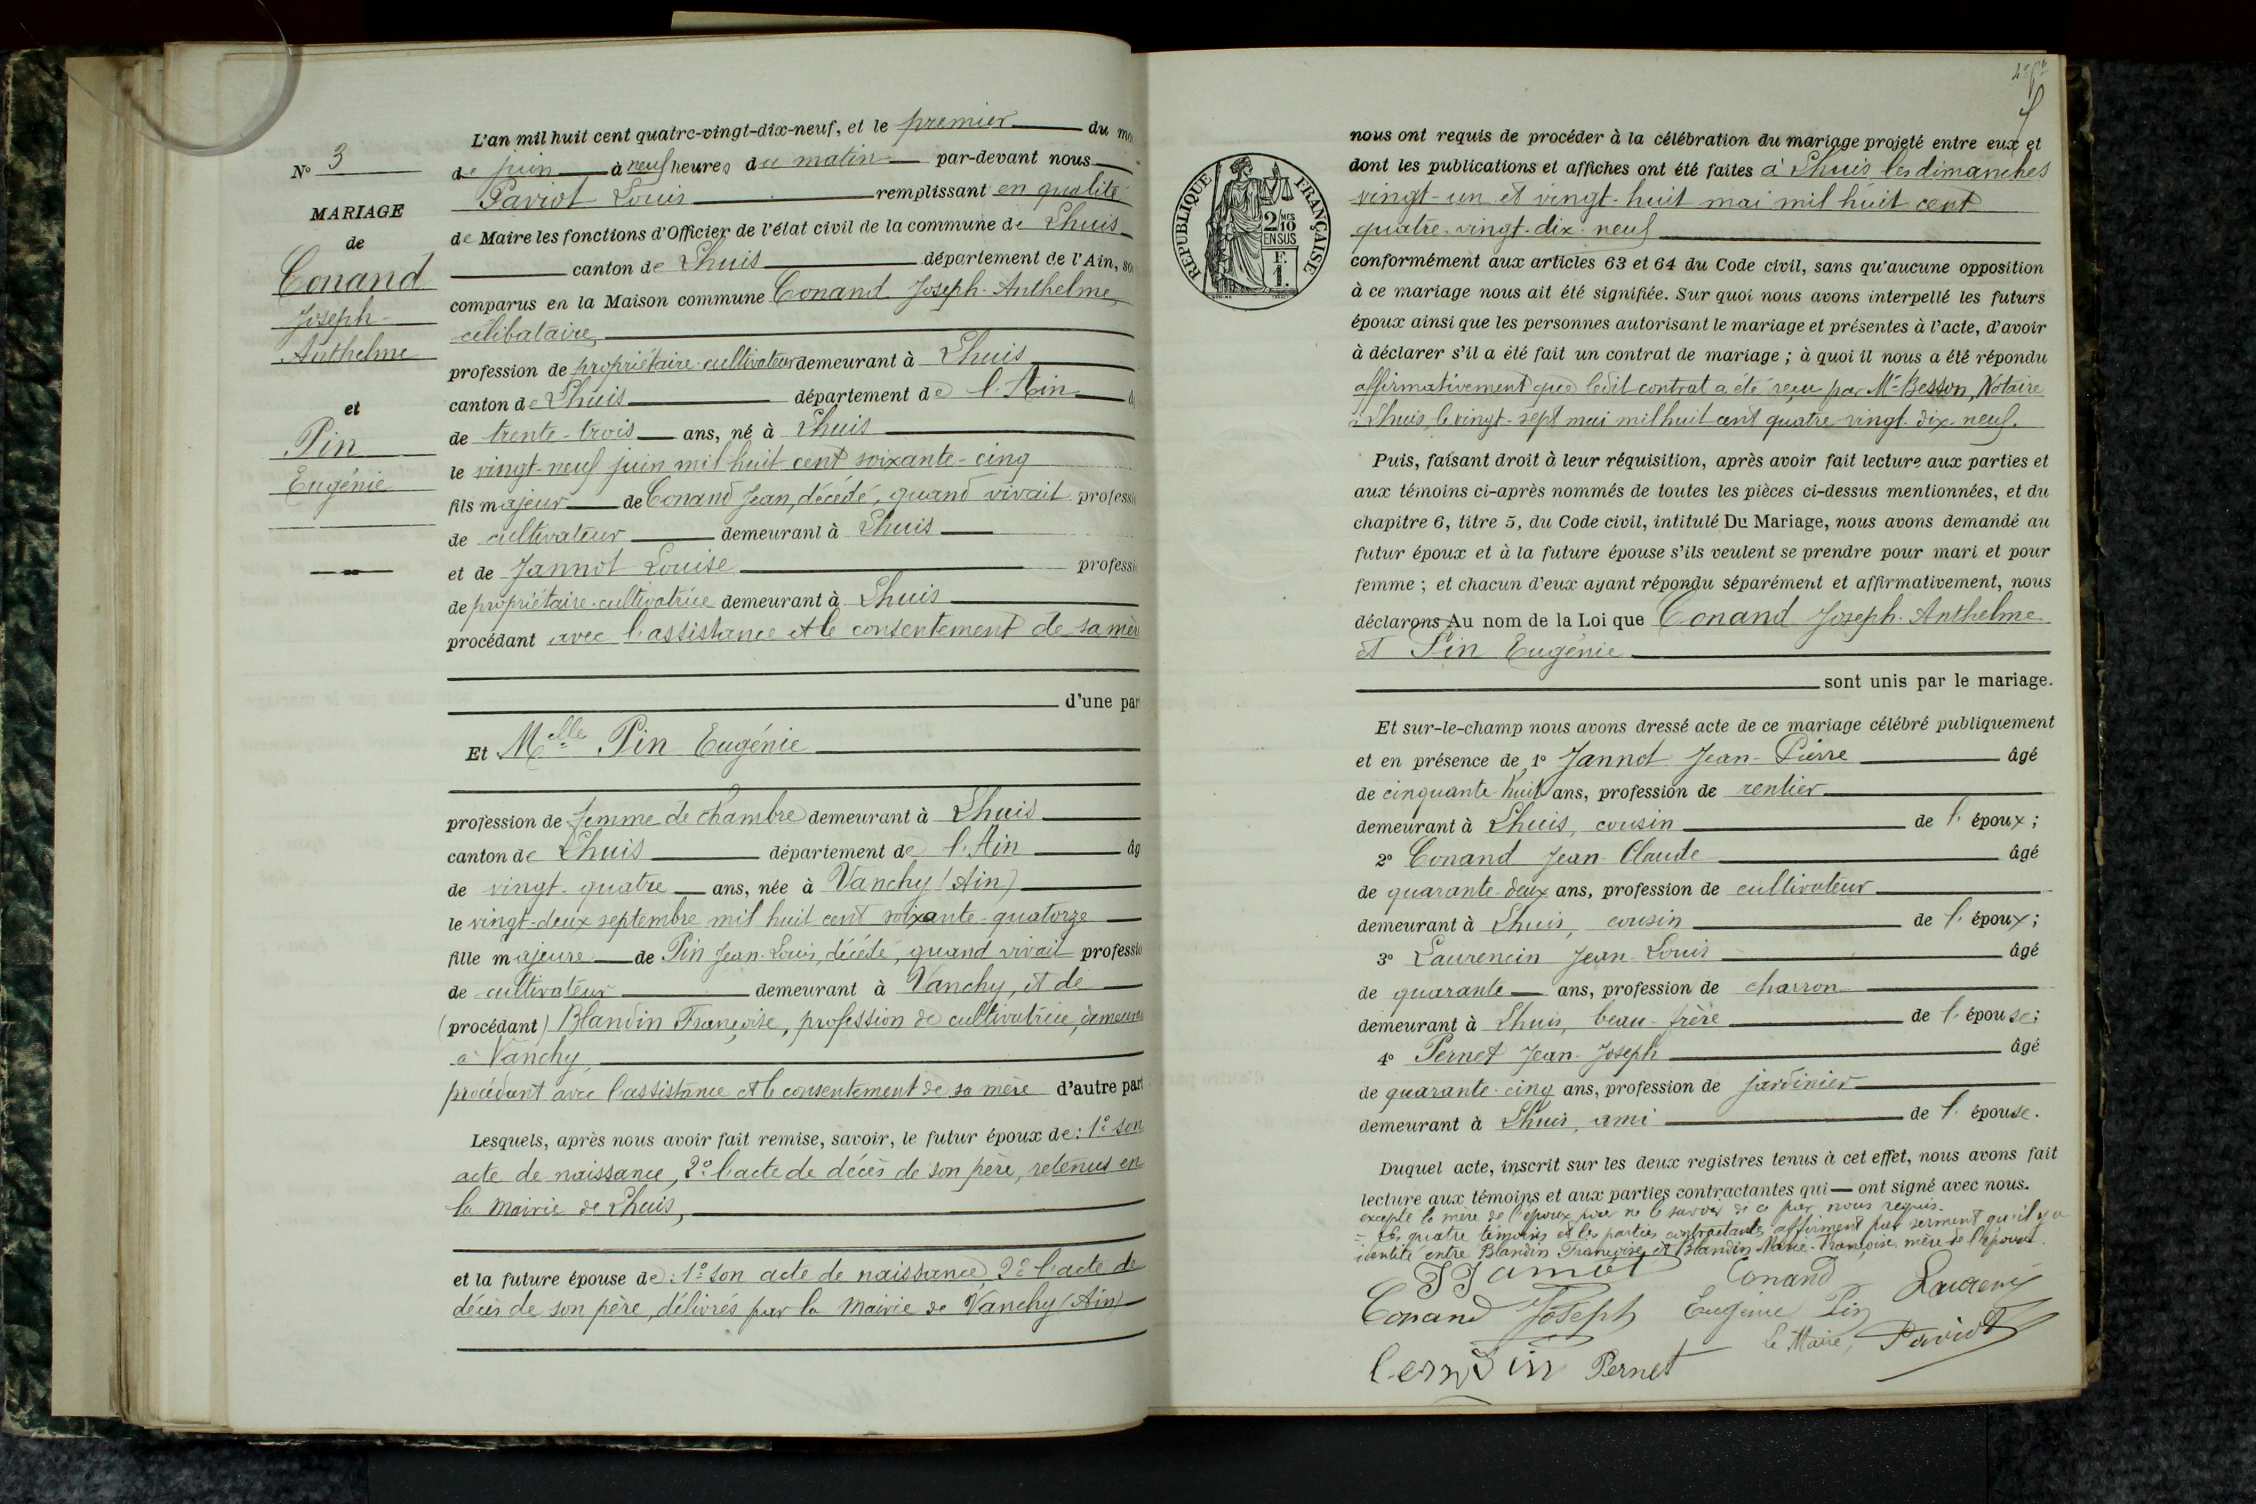 N° 3
MARIAGE
de
Conand
Joseph-
Anthelme
et
Pin
Eugénie
L'an mil huit cent quatre-vingt-dix-neuf, et le premier du mo
de juin à neuf heures du matin par-devant nous
Paviot Louis remplissant en qualité
de Maire les fonctions d'Officier de l'état civil de la commune de Lhuis
canton de Lhuis département de l'Ain, so
comparus en la Maison commune Conand Joseph-Anthelme,
célibataire,
profession de propriétaire-cultivateur demeurant à Lhuis
canton de Lhuis département de l'Ain
de trente-trois ans, né à Lhuis
le vingt-neuf juin mil huit cent soixante-cinq
fils majeur de Conand Jean, décédé, quand vivait professi
de cultivateur demeurant à Lhuis
et de Jannot Louise professi
de propriétaire-cultivatrice demeurant à Lhuis
procédant avec l'assistance et le consentement de sa mèr
d'une par
Et Melle Pin Eugénie
profession de femme de chambre demeurant à Lhuis
canton de Lhuis département de l'Ain âg
de vingt-quatre ans, née à Vanchy (Ain)
le vingt-deux septembre mil huit cent soixante-quatorze
fille majeure de Pin Jean-Louis, décédé, quand vivait professio
de cultivateur demeurant à Vanchy, et de
(procédant) Blandin Françoise, profession de cultivatrice, demeura
à Vanchy,
procédant avec l'assistance et le consentement de sa mère d'autre part
Lesquels, après nous avoir fait remise, savoir, le futur époux de : 1° son
acte de naissance, 2° l'acte de décès de son père, retenus en
la Mairie de Lhuis,
et la future épouse de : 1° son acte de naissance, 2° l'acte de
décès de son père, délivrés par la Mairie de Vanchy (Ain)
RÉPUBLIQUE FRANÇAISE
2 MES 10
EN SUS
F.
1.
nous ont requis de procéder à la célébration du mariage projeté entre eux et
dont les publications et affiches ont été faites à Lhuis les dimanches
vingt-un et vingt-huit mai mil huit cent
quatre-vingt-dix-neuf
conformément aux articles 63 et 64 du Code civil, sans qu'aucune opposition
à ce mariage nous ait été signifiée. Sur quoi nous avons interpellé les futurs
époux ainsi que les personnes autorisant le mariage et présentes à l'acte, d'avoir
à déclarer s'il a été fait un contrat de mariage ; à quoi il nous a été répondu
affirmativement que ledit contrat a été reçu par Me Besson, Notaire
à Lhuis, le vingt-sept mai mil huit cent quatre vingt-dix-neuf.
Puis, faisant droit à leur réquisition, après avoir fait lecture aux parties et
aux témoins ci-après nommés de toutes les pièces ci-dessus mentionnées, et du
chapitre 6, titre 5, du Code civil, intitulé Du Mariage, nous avons demandé au
futur époux et à la future épouse s'ils veulent se prendre pour mari et pour
femme ; et chacun d'eux ayant répondu séparément et affirmativement, nous
déclarons Au nom de la Loi que Conand Joseph-Anthelme
et Pin Eugénie
sont unis par le mariage.
Et sur-le-champ nous avons dressé acte de ce mariage célébré publiquement
et en présence de 1° Jannot Jean-Pierre âgé
de cinquante huit ans, profession de rentier
demeurant à Lhuis, cousin de l'époux ;
2° Conand Jean-Claude âgé
de quarante-deux ans, profession de cultivateur
demeurant à Lhuis, cousin de l'époux ;
3° Laurencin Jean-Louis âgé
de quarante ans, profession de charron
demeurant à Lhuis, beau-frère de l'épouse ;
4° Pernet Jean-Joseph âgé
de quarante-cinq ans, profession de jardinier
demeurant à Lhuis, ami de l'épouse.
Duquel acte, inscrit sur les deux registres tenus à cet effet, nous avons fait
lecture aux témoins et aux parties contractantes qui ont signé avec nous.
excepté la mère de l'époux pour ne le savoir de ce par nous requis.
= Les quatre témoins et les parties contractantes affirment par serment qu'il y a
identité entre Blandin Françoise et Blandin Marie-Françoise, mère de l'épouse.
Conand
Conand Joseph Eugénie Pin
Le Maire, Paviot
Pernet